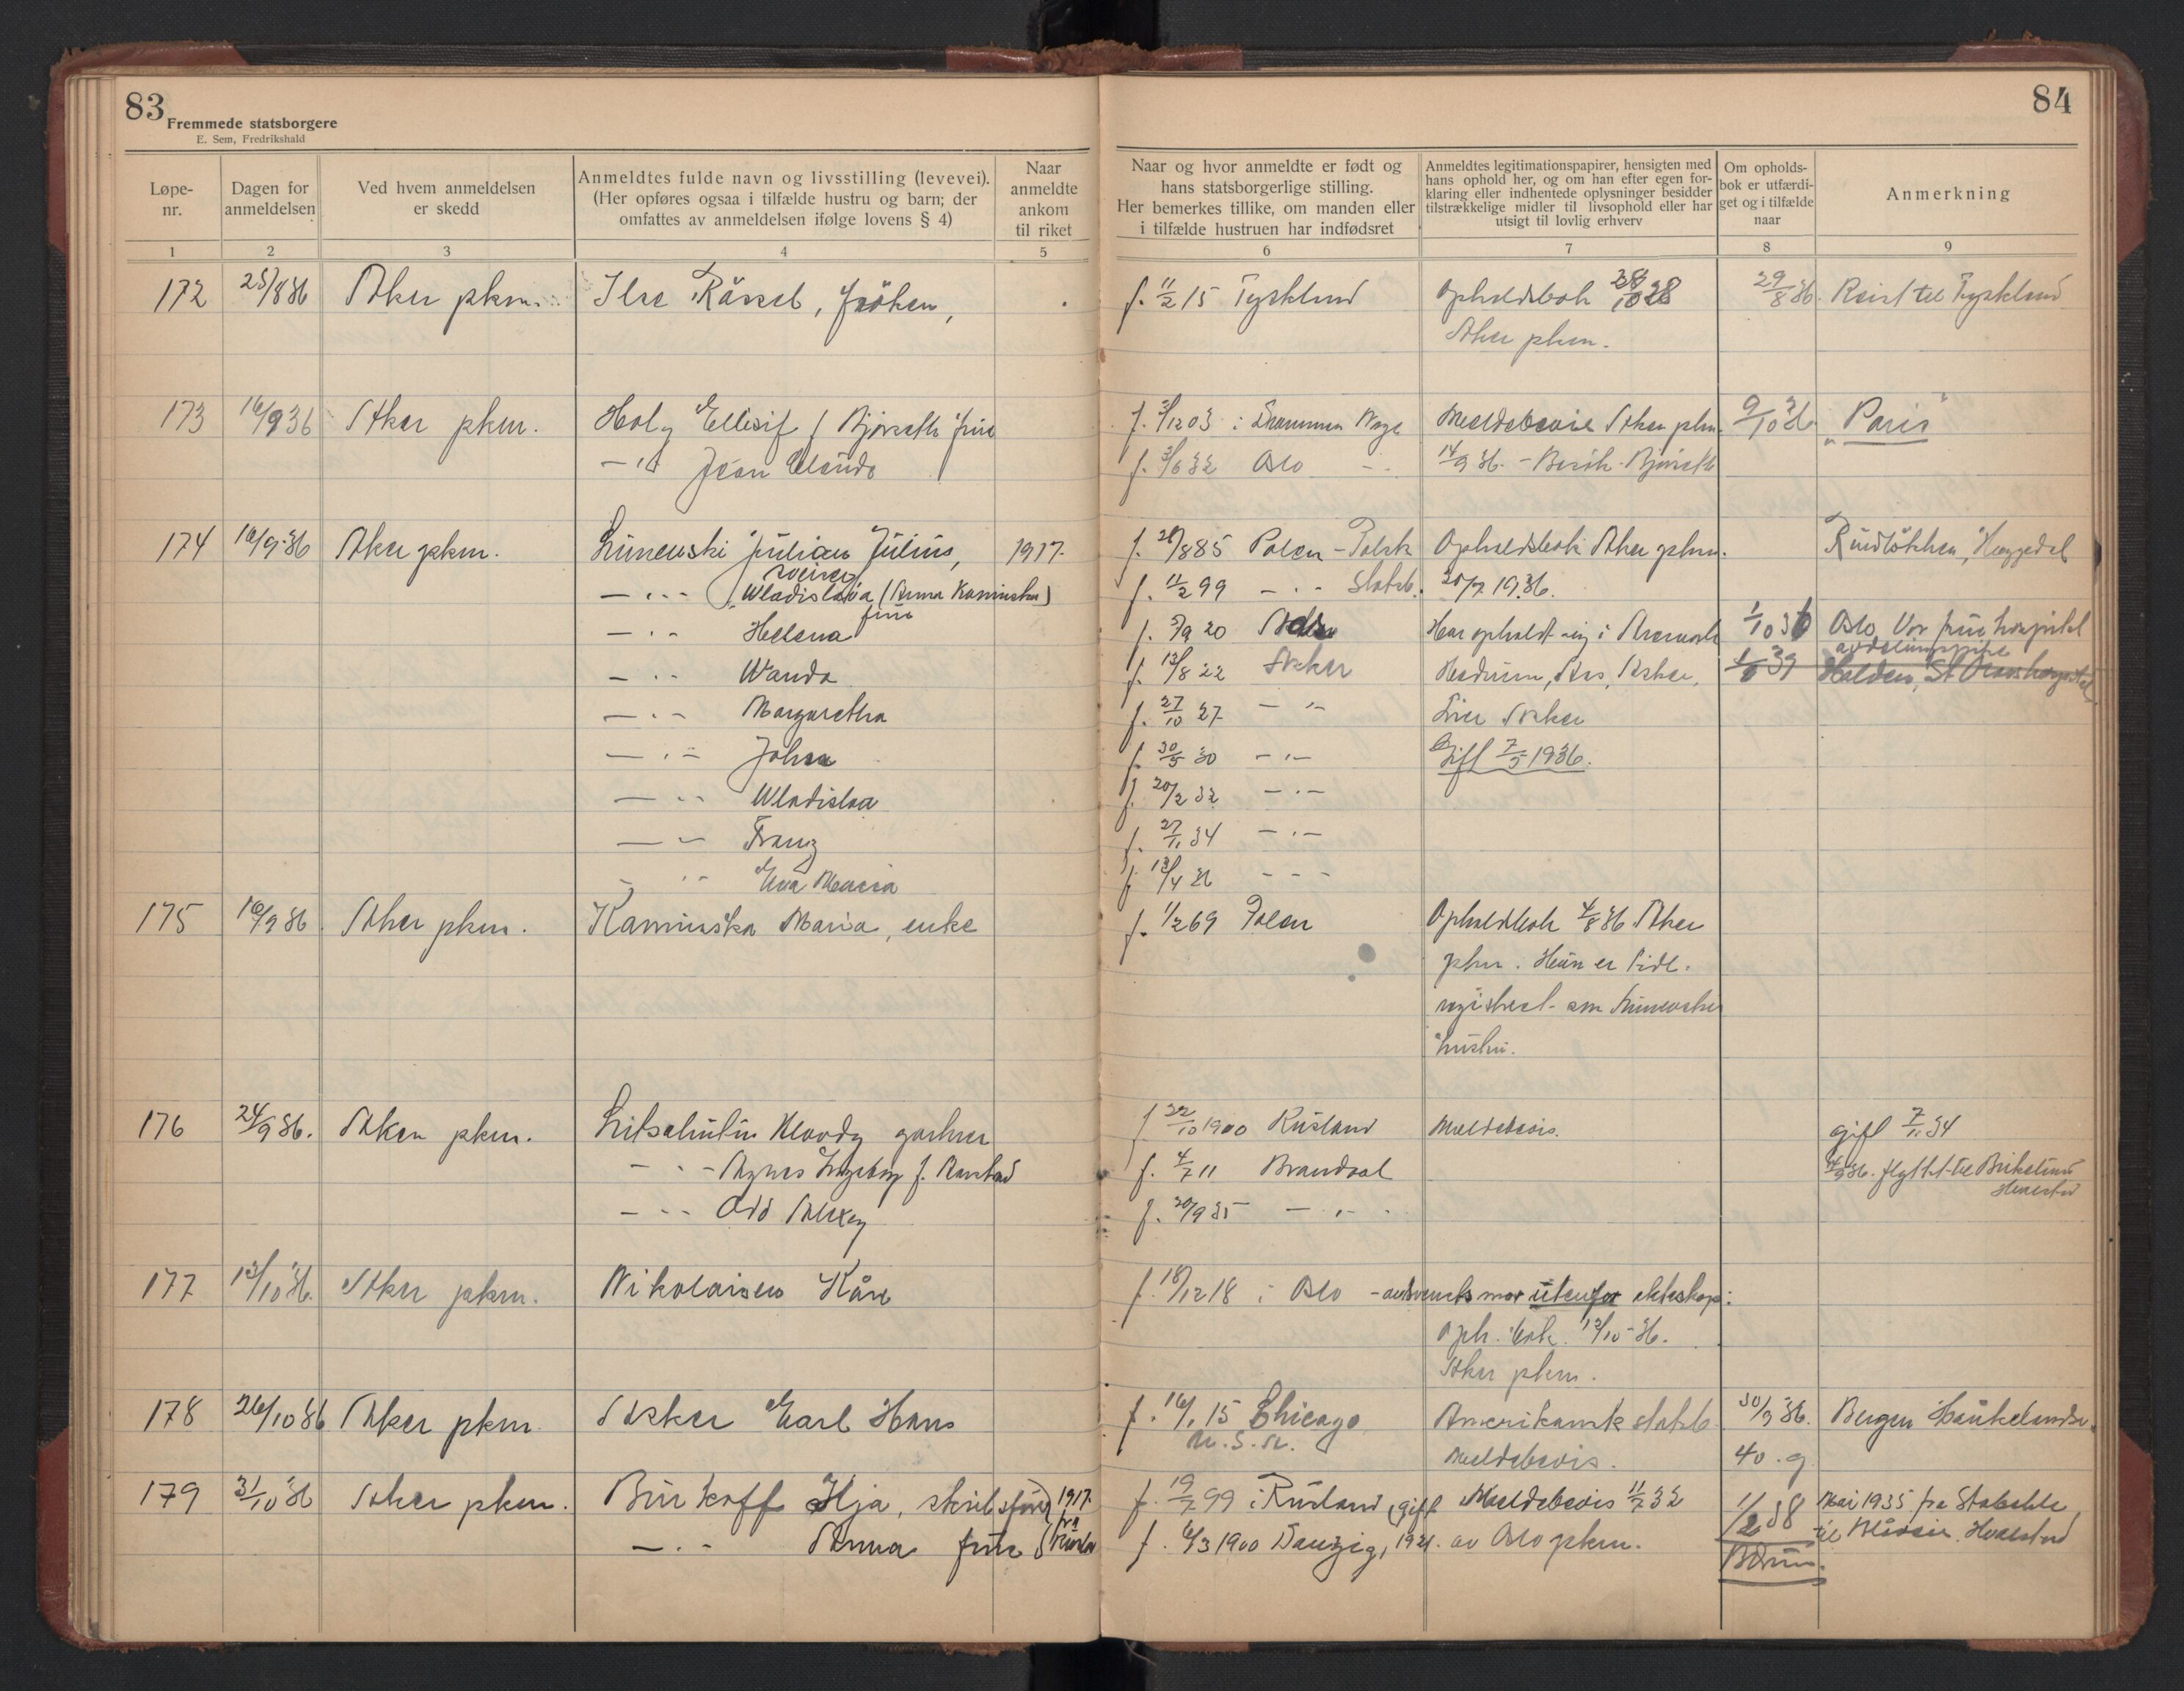 83
Fremmede statsborgere
E. Sem, Fredrikshald
84
Løpe-
nr.
Dagen for
anmeldelsen
Ved hvem anmeldelsen
er skedd
Anmeldtes fulde navn og livsstilling (levevei).
(Her opføres ogsaa i tilfælde hustru og barn; der
omfattes av anmeldelsen ifølge lovens § 4)
Naar
anmeldte
ankom
til riket
Naar og hvor anmeldte er født og
hans statsborgerlige stilling.
Her bemerkes tillike, om manden eller
i tilfælde hustruen har indfødsret
Anmeldtes legitimationspapirer, hensigten med
hans ophold her, og om han efter egen for-
klaring eller indhentede oplysninger besidder
tilstrækkelige midler til livsophold eller har
utsigt til lovlig erhverv
Om opholds-
bok er utfærdi-
get og i tilfælde
naar
Anmerkning
1 2 3 4 5 6 7 8 9
172 25/8 36 Aker pkm. Ilse, frøken, f. 11/2 15 Tyskland Opholdsbok 28/10 28 29/8 36. Reist til Tyskland
Aker pkm.
173 16/9 36 Aker pkm. Holy Ellisif f. Bjørseth frue f. 3/12 03 i Drammen Meldebevis Aker pkm. 9/10 36 "Paris"
Jean f. 3/6 32 Oslo 14/9 36. - Besök - Bjørseth
174 16/9-36 Aker pkm. Lunewski Julian Julius, 1917. f. 28/8 85 Polen - Polsk Opholdsbok Aker pkm.
sveiser
Wladislava (Anna Kaminska) f. 11/2 99 - " - Statsb. 20/7 1936.
frue
- " - Helena f. 5/9 20 Har opholdt sig i 1/10 36 Oslo, Vor frue hospital
avdelingspike
- " - Wanda f. 13/8 22 Asker Hedrum, Ås, Asker, Halden, St. hospital
- " - Margaretha f. 27/10 27 - " - Lier Asker
- " - Johan f. 30/5 30 - " - Gift 7/5 1936.
- " - Wladislaa f. 20/2 32 - " -
- " - Franz f. 27/11 34 - " -
- " - Eva Maria f. 13/4 36 - " -
175 16/9 36 Aker pkm. Kaminska Maria, enke f. 11/2 69 Polen Opholdsbok 4/8 36 Aker
pkm. Hun er tidl.
registrert som
hustru.
176 24/9 36. Aker pkm. gartner f. 22/10 1900 Rusland Meldebevis. gift 7/11 34
- " - Agnes Ingeborg f. f. 4/7 11 flyttet til
- " - Odd Alexey f. 20/9 35 - " -
177 13/10 36. Aker pkm. Nikolaisen Kåre f. 18/12 18 i Oslo - mor utenfor ekteskap:
Oph. bok. 12/10-36.
Aker pkm.
178 26/10 36 Aker pkm. Asker Earl Hans f. 16/1 15 Chicago Amerikansk statsb. 30/9 36. Bergen
U.S.A. Meldebevis. 40. g
179 31/10 36 Aker pkm. Burkoff Ilja, 1917. f. 19/7 99 i Rusland, gift Meldebevis 11/7 32 1/2 38 Mai 1935 fra Stabekk
fra
- " - Anna frue Rusland f. 6/3 1900 Danzig, 1921. av Oslo pkm. til Hvalstad
Bærum.